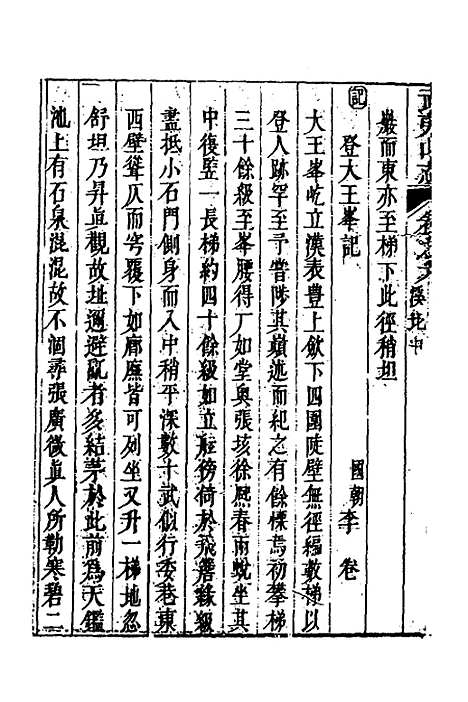 武夷山志 卷之 溪北中
巖而東亦至梯下此徑稍坦
記
登大王峯記
國朝 李卷
大王峯屹立漢表豊上斂下四圍陡壁無徑編數梯以
登人跡罕至予嘗陟其巔述而紀之有餘慄焉初攀梯
三十餘級至峯腰得厂如堂奥張垓徐熙春兩蛻坐其
中復竪一長梯約四十餘級如立壁徬徛於飛磴緣級
盡抵小石門側身而入中稍平深數十武似行委巷東
西壁聳仄而穹覆下如廊廡皆可列坐又升一梯地忽
舒坦乃昇真觀故址邇避亂者多結茅於此前為天鑑
池上有石泉混混故不涸尋張廣微真人所勒寒碧二